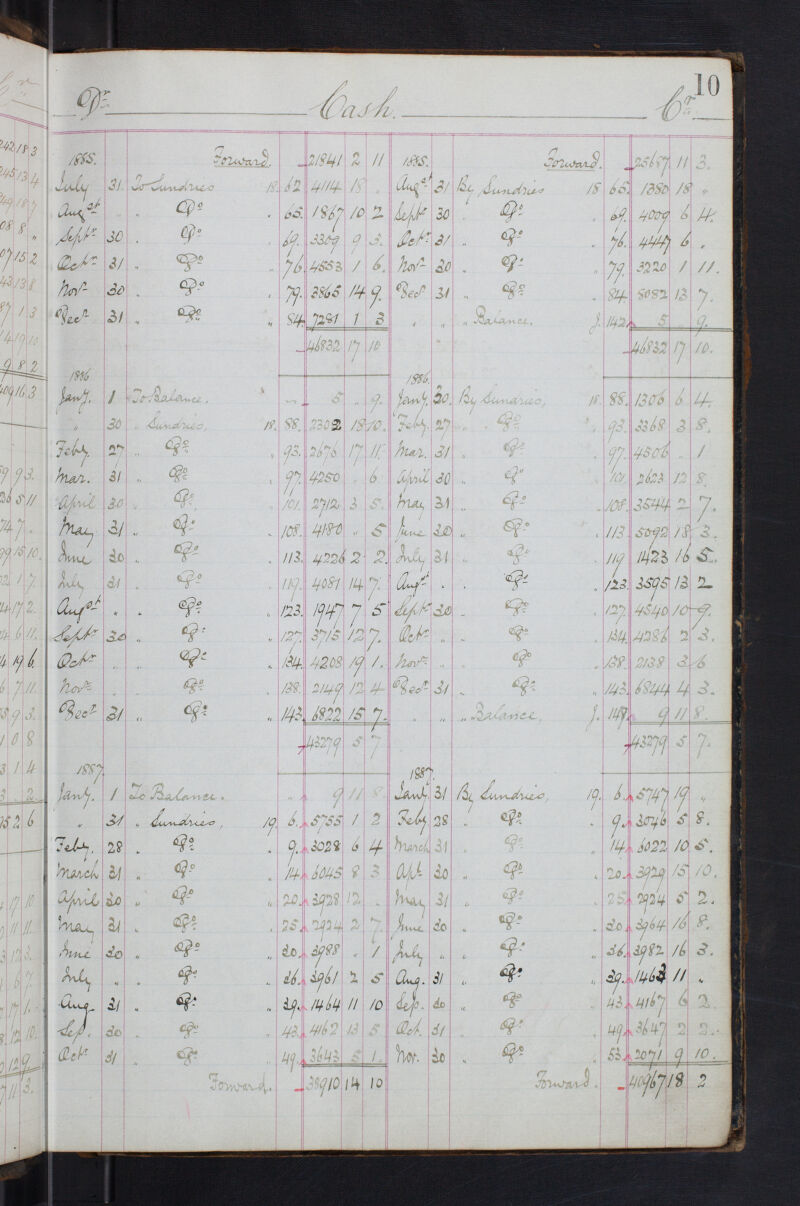 10
Dr. Cash. Cr.
1885. Forward. 21841 2 11 1885. Forward. 25687 11 3.
July 31. To Sundries 18. 62. 4114 18 . Augst 31 By Sundries 18 65. 1380 18 "
Augst " . Do . 65. 1867 10 2 Septr 30 . Do . 69. 4009 6 4.
Septr 30 . Do . 69. 3309 9 3. Octr 31 " Do . 76. 4447 6 .
Octr 31 " Do . 76. 4553 1 6. Novr 30 . Do . 79. 3220 1 11.
Novr 30 . Do . 79. 3865 14 9. Decr 31 " Do . 84. 8082 13 7.
Decr 31 " Do " 84. 7281 1 3 " " " Balance. J. 142. 5 . 9.
46832 17 10 46832 17 10.
1886 1886.
Jany. 1 To Balance. 5 " 9. Jany. 30. By Sundries, 18. 88. 1306 6 4.
" 30 . Sundries, 18. 88. 2302 18 10. Feby. 27 " Do . 93. 3368 3 8.
Feby. 27 " Do . 93. 2676 17 11. Mar. 31 " Do . 97. 4506 . 1
Mar. 31 " Do . 97. 4250 . 6. April 30 " Do . 101. 2623 12 8.
April 30 " Do . 101. 2712 3 5. May 31 " Do . 108. 3544 2 7.
May 31 " Do . 108. 4180 . 5 June 30 " Do . 113. 5092 18 3.
June 30 " Do . 113. 4226 2 2. July 31 " Do . 119 1423 16 5.
July 31 . Do . 119. 4081 14 7. Augst . . Do . 123. 3595 13 2
Augst " . Do . 123. 1947 7 5 Septr 30 . Do . 127. 4540 10 9.
Septr 30 . Do . 127. 3715 12 7. Octr " . Do . 134. 4286 2 3.
Octr . . Do . 134. 4208 19 1. Novr . . Do . 138. 2138 3 6
Novr . . Do . 138. 2149 12 4 Decr 31 . Do " 143. 6844 4 3.
Decr 31 " Do " 143. 6822 15 7. . " " Balance, J. 148. 9 11 8.
43279 5 7 43279 5 7.
1887. 1887.
Jany. 1 To Balance. 9 11 8. Jany. 31 By Sundries, 19. 6. 5747 19 "
" 31 " Sundries, 19. 6. 5755 1 2 Feby 28 " Do . 9. 3046 5 8.
Feby. 28 . Do . 9. 3028 6 4 March 31 . Do . 14. 6022 10 5.
March 31 . Do . 14. 6045 8 3 Apl. 30 . Do . 20. 3929 15 10.
April 30 . Do . 20. 3928 12 . May 31 . Do . 25. 2924 5 2.
May 31 . Do . 25. 2924 2 7. June 30 . Do . 30. 3964 16 8.
June 30 . Do . 30. 3988 . 1 July " . Do . 36. 3982 16 3.
July " . Do . 36. 3961 2 5 Aug. 31 . Do " 39. 1463 11 "
Aug. 31 . Do . 39. 1464 11 10 Sep. 30 . Do . 43. 4167 6 2.
Sep. 30 . Do " 43. 4162 13 5 Oct. 31 . Do " 49. 3647 2 2.
Octr 31 . Do " 49. 3643 5 1. Nov. 30 . Do . 53. 2071 9 10.
Forward. 38910 14 10 Forward. 40967 18 2